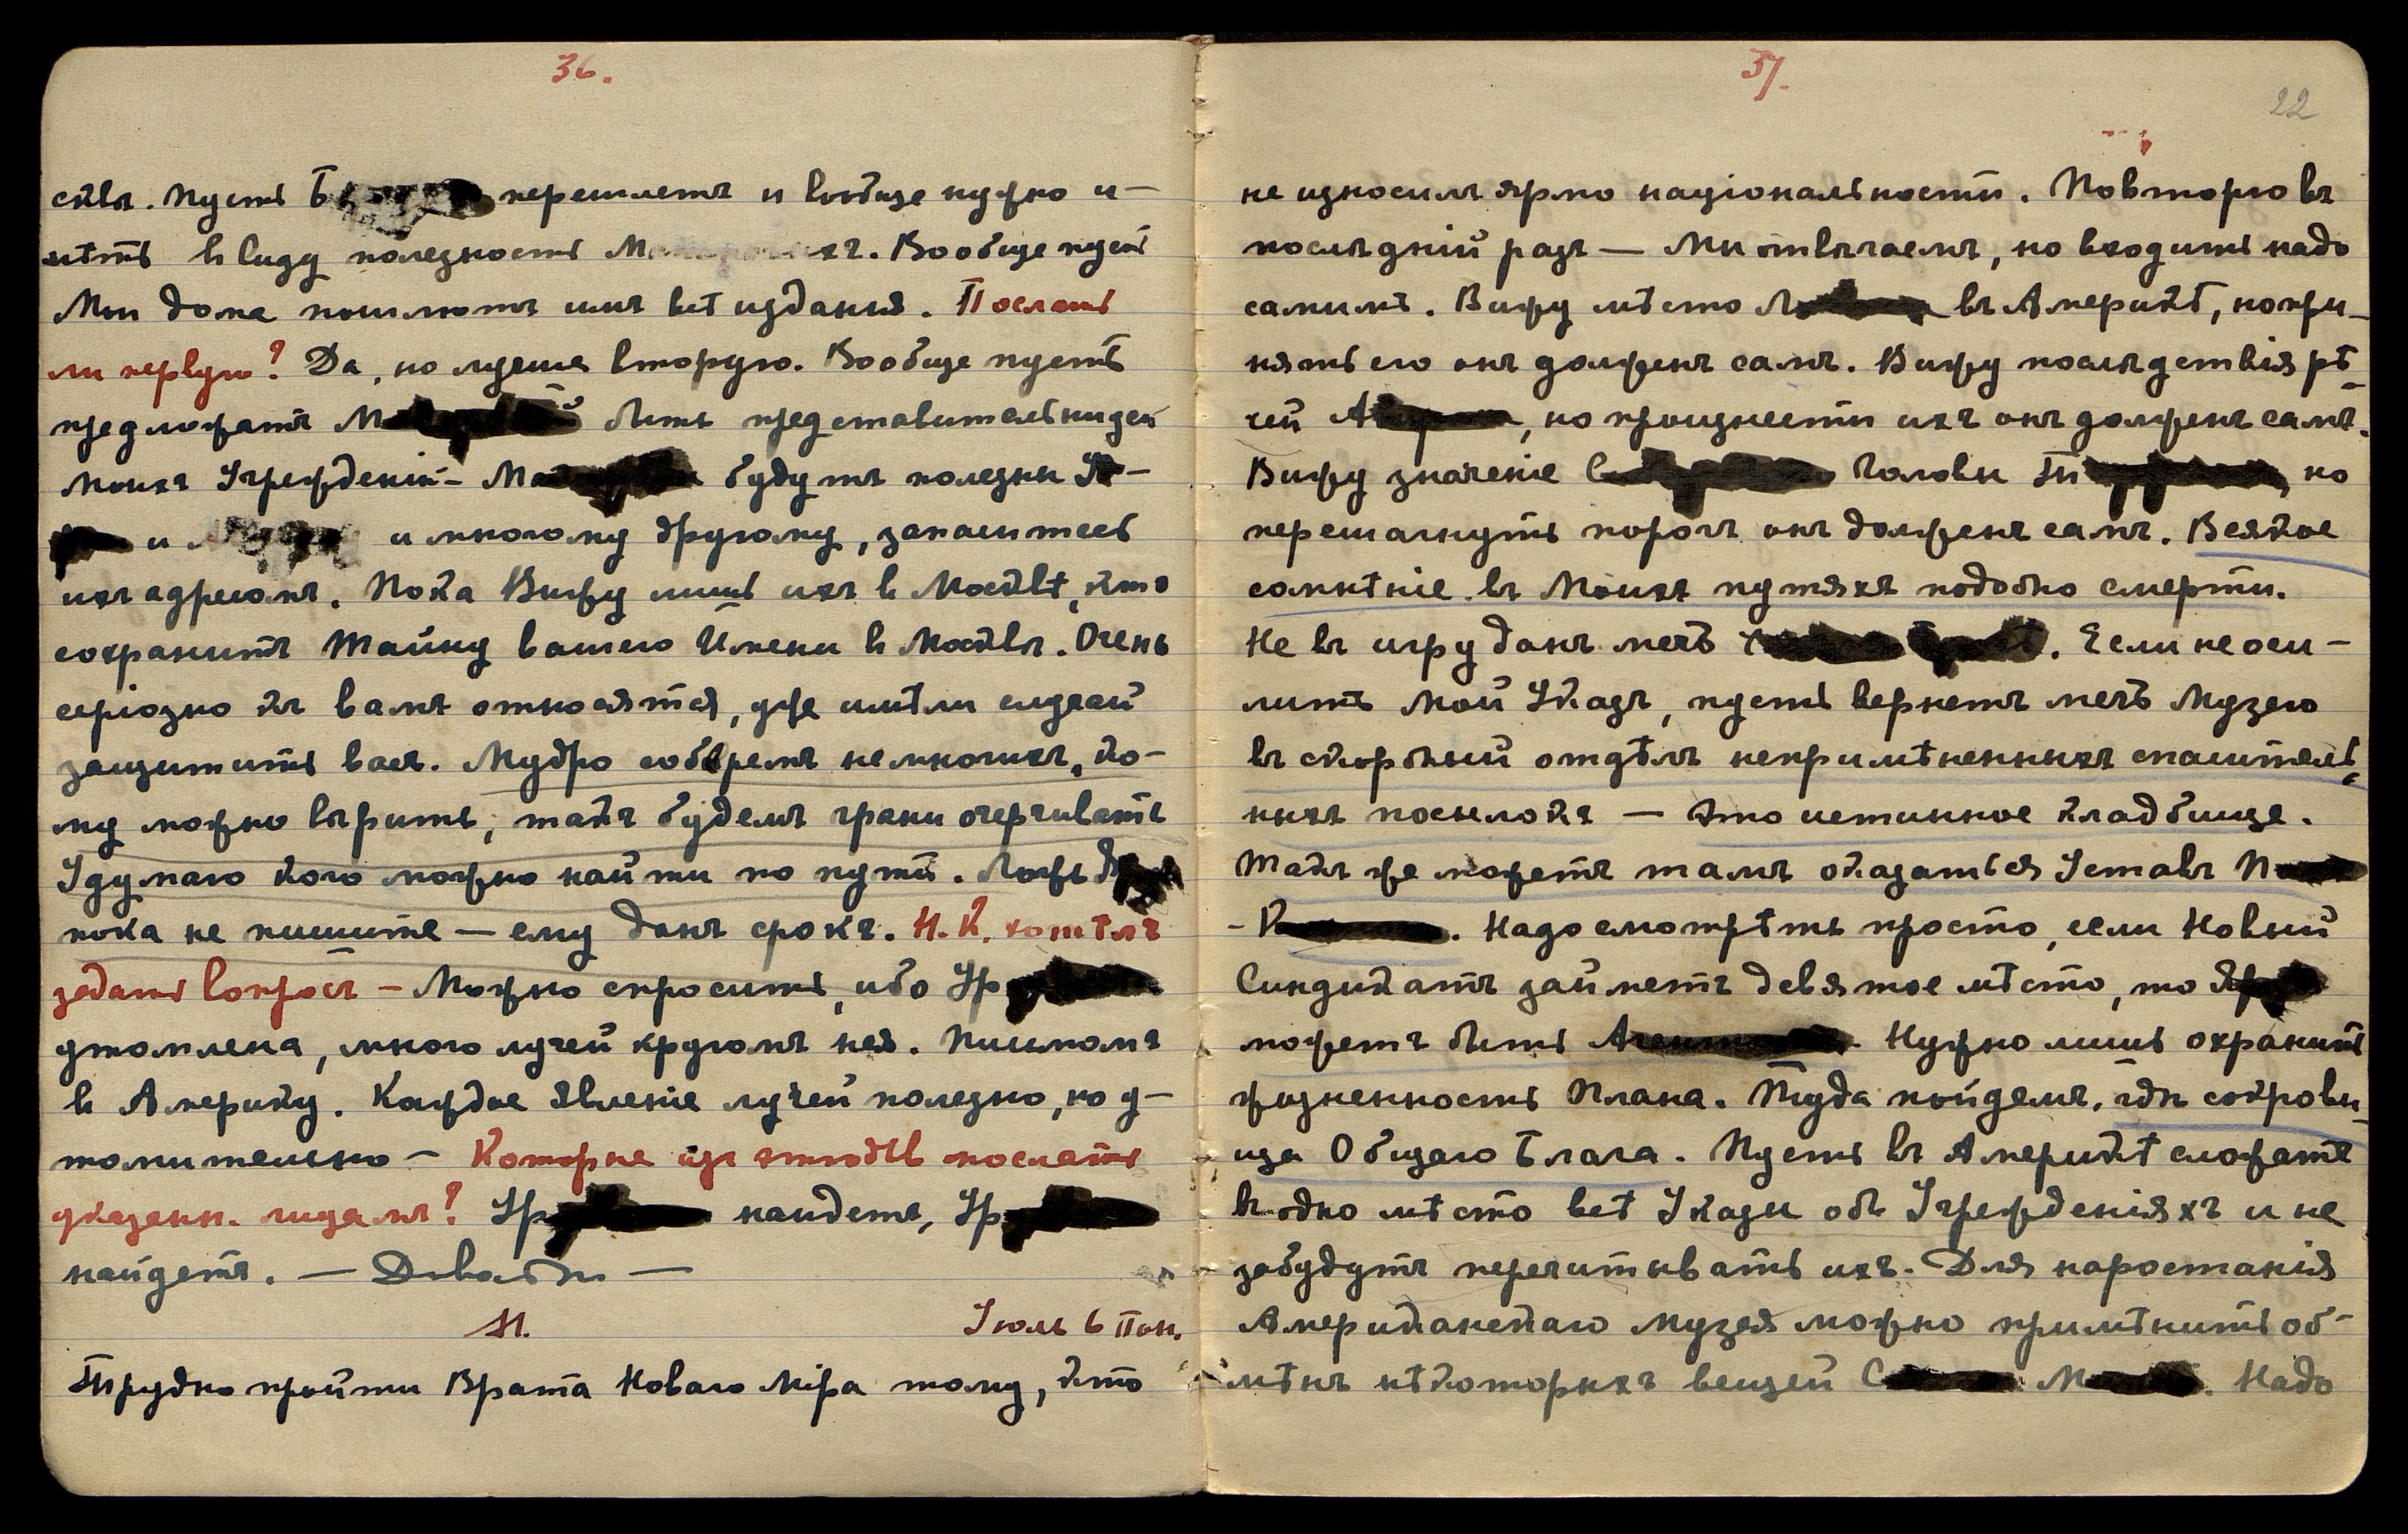 36.
сквы. Пусть Б перешлетъ и вообще нужно и-
мѣть в виду полезность М хъ. Вообще пусть
Мои дома пошлютъ имъ всѣ изданія. Послать
ли первую? Да, но лучше вторую. Вообще пусть
предложатъ М быть представительницей
моихъ Учрежденій – М будутъ полезны
и и многому другому, запаситесь
ихъ адресомъ. Пока Вижу лишь ихъ в Москвѣ, кто
сохранитъ тайну вашего Имени в Москвы. Очень
серіозно къ вамъ относятся, уже имѣли случай
защитить васъ. Мудро соберемъ немногихъ, ко-
му можно върить, такъ будемъ грани очерчивать
Удумаю кого можно найти по пути. Логв
пока не пишите — ему данъ срокъ. Н.К. хотѣлъ
задать вопросъ – Можно спросить, ибо Ур
утомлена, много лучей кругомъ нея. Письмомъ
в Америку. Каждое явленіе лучей полезно, но у-
томительно – Которые изъ этюдовъ послать
указанн. лицамъ? Ур найдете, Ур
найдетъ. —
Іюль 6 Пон.
Трудно пройти Врата Новаго Міра тому, кто
37.
22
не износилъ ярмо національности. Повторю въ
послъдній разъ — Мы отвъчаемъ, но входить надо
самимъ. Вижу мѣсто Л въ Америкѣ, но при-
нять его онъ долженъ самъ. Вижу послъдствія рѣ-
чей А , но произнести ихъ онъ долженъ самъ.
Вижу значеніе С Головы Т , но
перешагнуть порогъ онъ долженъ самъ. Всякое
сомнѣніе въ Моихъ путяхъ подобно смерти.
Не въ игру данъ мечъ . Если не оси-
литъ мой Указъ, пусть вернетъ мечъ Музею
въ скорбный отдѣлъ непримѣненныхъ спаситель-
ныхъ посылокъ — это истинное кладбище.
Такъ же можетъ тамъ оказаться Уставъ П
- К . Надо смотрѣть просто, если Новый
Синдикатъ займетъ девятое мѣсто, то Яр
можетъ быть . Нужно лишь охранить
жизненность Плана. Туда пойдемъ, гдъ сокрови-
ща Общаго Блага. Пусть въ Америкѣ сложатъ
въ одно мѣсто всѣ Указы объ Учрежденіяхъ и не
забудутъ перечитывать ихъ. Для наростанія
Американскаго Музея можно примѣнить об-
мѣнъ нѣкоторыхъ вещей С М . Надо